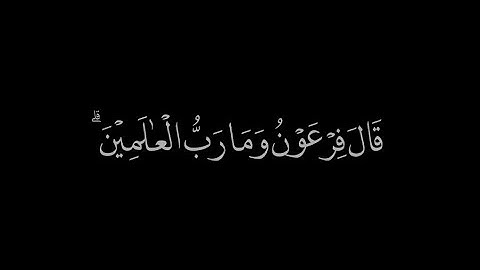 قَالَ فِرْعَوْنُ وَمَا رَبُّ الْعٰلَمِيْنَ ۗ